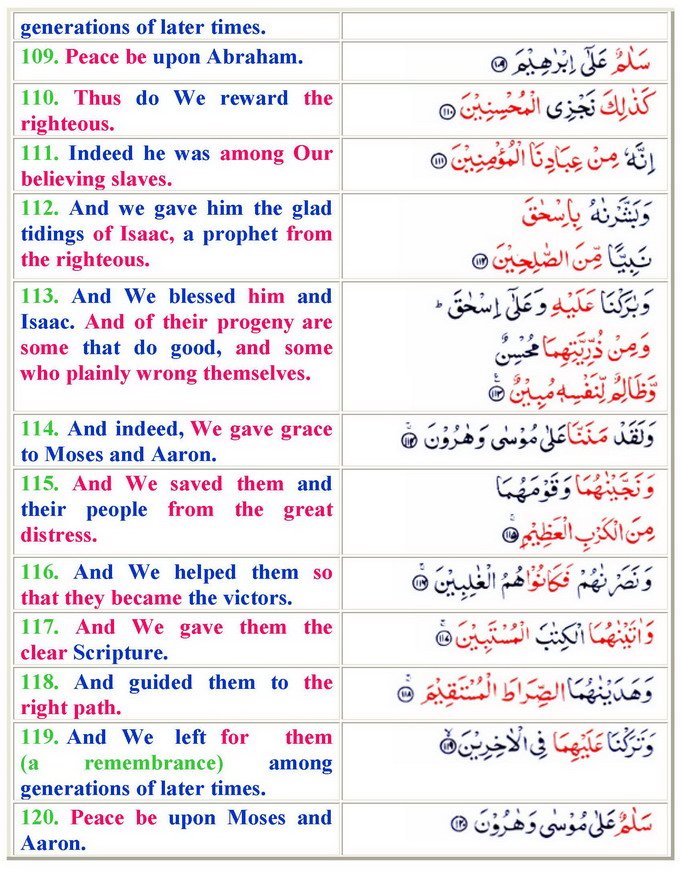 generations of later times.
109. Peace be upon Abraham.
سَلٰمٌ عَلٰٓى اِبْرٰهِيْمَ ۝۱۰۹
110. Thus do We reward the
righteous.
كَذٰلِكَ نَجْزِى الْمُحْسِنِيْنَ ۝۱۱۰
111. Indeed he was among Our
believing slaves.
اِنَّهٗ مِنْ عِبَادِنَا الْمُؤْمِنِيْنَ ۝۱۱۱
112. And we gave him the glad
tidings of Isaac, a prophet from
the righteous.
وَبَشَّرْنٰهُ بِاِسْحٰقَ
نَبِيًّا مِّنَ الصّٰلِحِيْنَ ۝۱۱۲
113. And We blessed him and
Isaac. And of their progeny are
some that do good, and some
who plainly wrong themselves.
وَبٰرَكْنَا عَلَيْهِ وَعَلٰٓى اِسْحٰقَ ؕ
وَمِنْ ذُرِّيَّتِهِمَا مُحْسِنٌ
وَّظَالِمٌ لِّنَفْسِهٖ مُبِيْنٌ ۝۱۱۳
114. And indeed, We gave grace
to Moses and Aaron.
وَلَقَدْ مَنَنَّا عَلٰى مُوْسٰى وَهٰرُوْنَ ۝۱۱۴
115. And We saved them and
their people from the great
distress.
وَنَجَّيْنٰهُمَا وَقَوْمَهُمَا
مِنَ الْكَرْبِ الْعَظِيْمِ ۝۱۱۵
116. And We helped them so
that they became the victors.
وَنَصَرْنٰهُمْ فَكَانُوْا هُمُ الْغٰلِبِيْنَ ۝۱۱۶
117. And We gave them the
clear Scripture.
وَاٰتَيْنٰهُمَا الْكِتٰبَ الْمُسْتَبِيْنَ ۝۱۱۷
118. And guided them to the
right path.
وَهَدَيْنٰهُمَا الصِّرَاطَ الْمُسْتَقِيْمَ ۝۱۱۸
119. And We left for them
(a remembrance) among
generations of later times.
وَتَرَكْنَا عَلَيْهِمَا فِى الْاٰخِرِيْنَ ۝۱۱۹
120. Peace be upon Moses and
Aaron.
سَلٰمٌ عَلٰى مُوْسٰى وَهٰرُوْنَ ۝۱۲۰